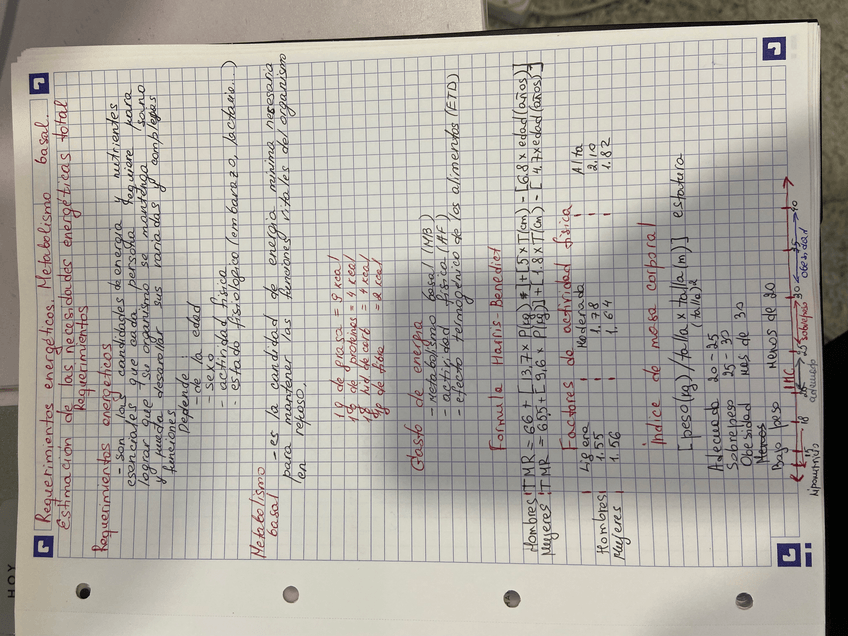 Requerimientos energéticos. Metabolismo basal.
Estimación de las necesidades energéticas total
Requerimientos
Requerimientos energéticos
- son las cantidades de energía y nutrientes
esenciales que cada persona requiere para
lograr que su organismo se mantenga sano
y pueda desarrollar sus variadas y complejas
funciones
Depende:
- de la edad
- sexo
- actividad física
- estado fisiológico (embarazo, lactario...)
Metabolismo
basal - es la candidad de energía mínima necesaria
para mantener las funciones vitales del organismo
en reposo.
1g de grasa = 9 kcal
1g de proteínas = 4 kcal
1g hid de carb = 4 kcal
1g de fibra = 2 kcal
Gasto de energía
- Metabolismo basal (MB)
- actividad física (AF)
- efecto termogénico de los alimentos (ETD)
Formula Harris-Benedict
Hombres TMR = 66 + [13,7 x P(kg)] + [5 x T(cm) - [6,8 x edad (años)]
Mujeres TMR = 655 + [9,6 x P(kg)] + [1.8 x T(cm) - [4.7 x edad (años)]
Factores de actividad física
Ligera Moderada Alta
Hombres 1.55 1.78 2.10
Mujeres 1.56 1.64 1.82
Indice de masa corporal
[peso(kg) / talla x talla (m)] estatura
(talla)2
Adecuado 20-25
Sobrepeso 25-30
Obesidad mas de 30
Menos
Bajo peso menos de 20
IMC
15 18 25 30 35 40
adecuado sobrepeso obesidad